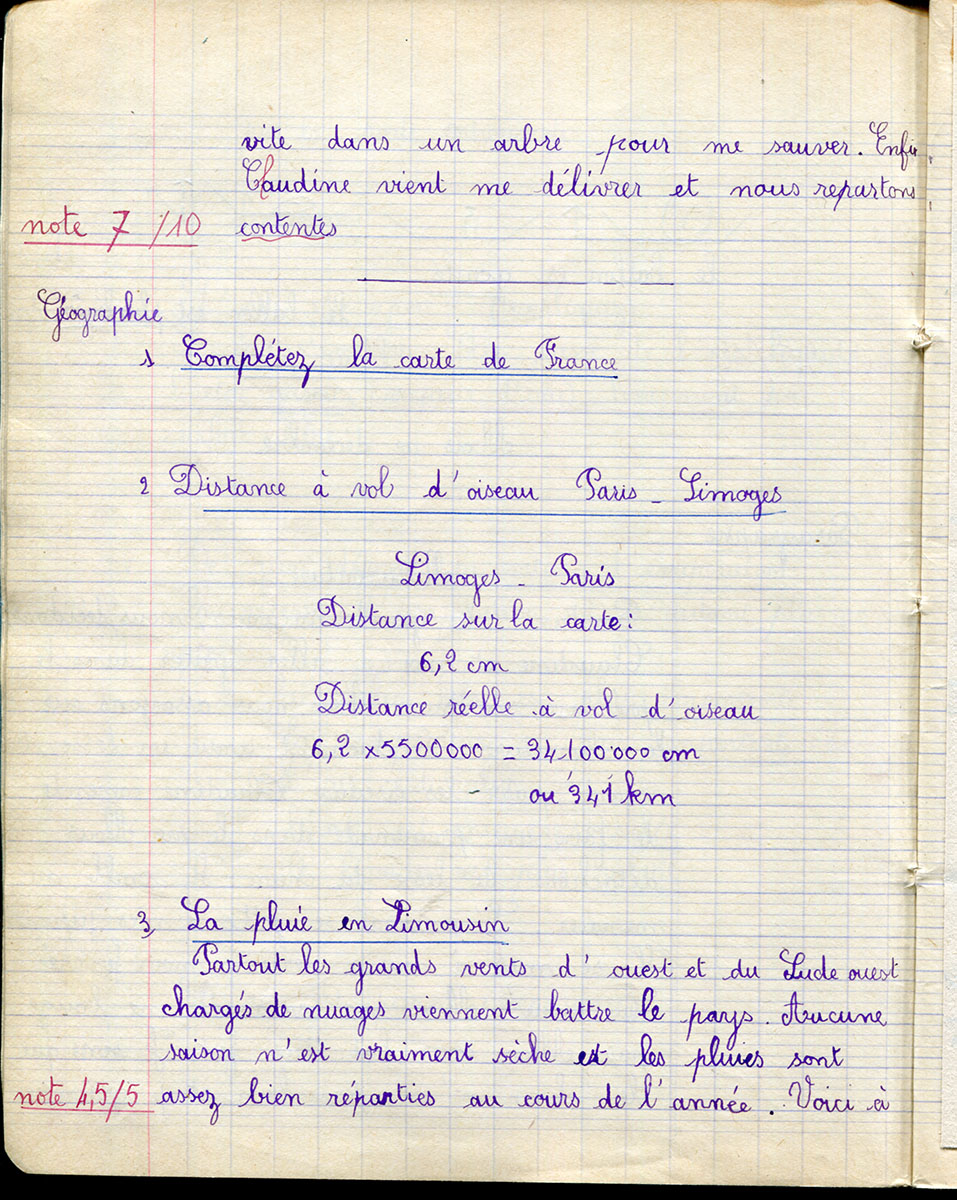 vite dans un arbre pour me sauver. Enfin
Claudine vient me délivrer et nous repartons
note 7/10 contentes
Géographie
1 Complétez la carte de France
2 Distance à vol d'oiseau Paris - Limoges
Limoges - Paris
Distance sur la carte :
6,2 cm
Distance réelle à vol d'oiseau
6,2 x 5500000 = 34100000 cm
ou 341 km
3 La pluie en Limousin
Partout les grands vents d'ouest et du Sude ouest
chargés de nuages viennent battre le pays. Aucune
saison n'est vraiment sèche et les pluies sont
note 4,5/5 assez bien réparties au cours de l'année. Voici à